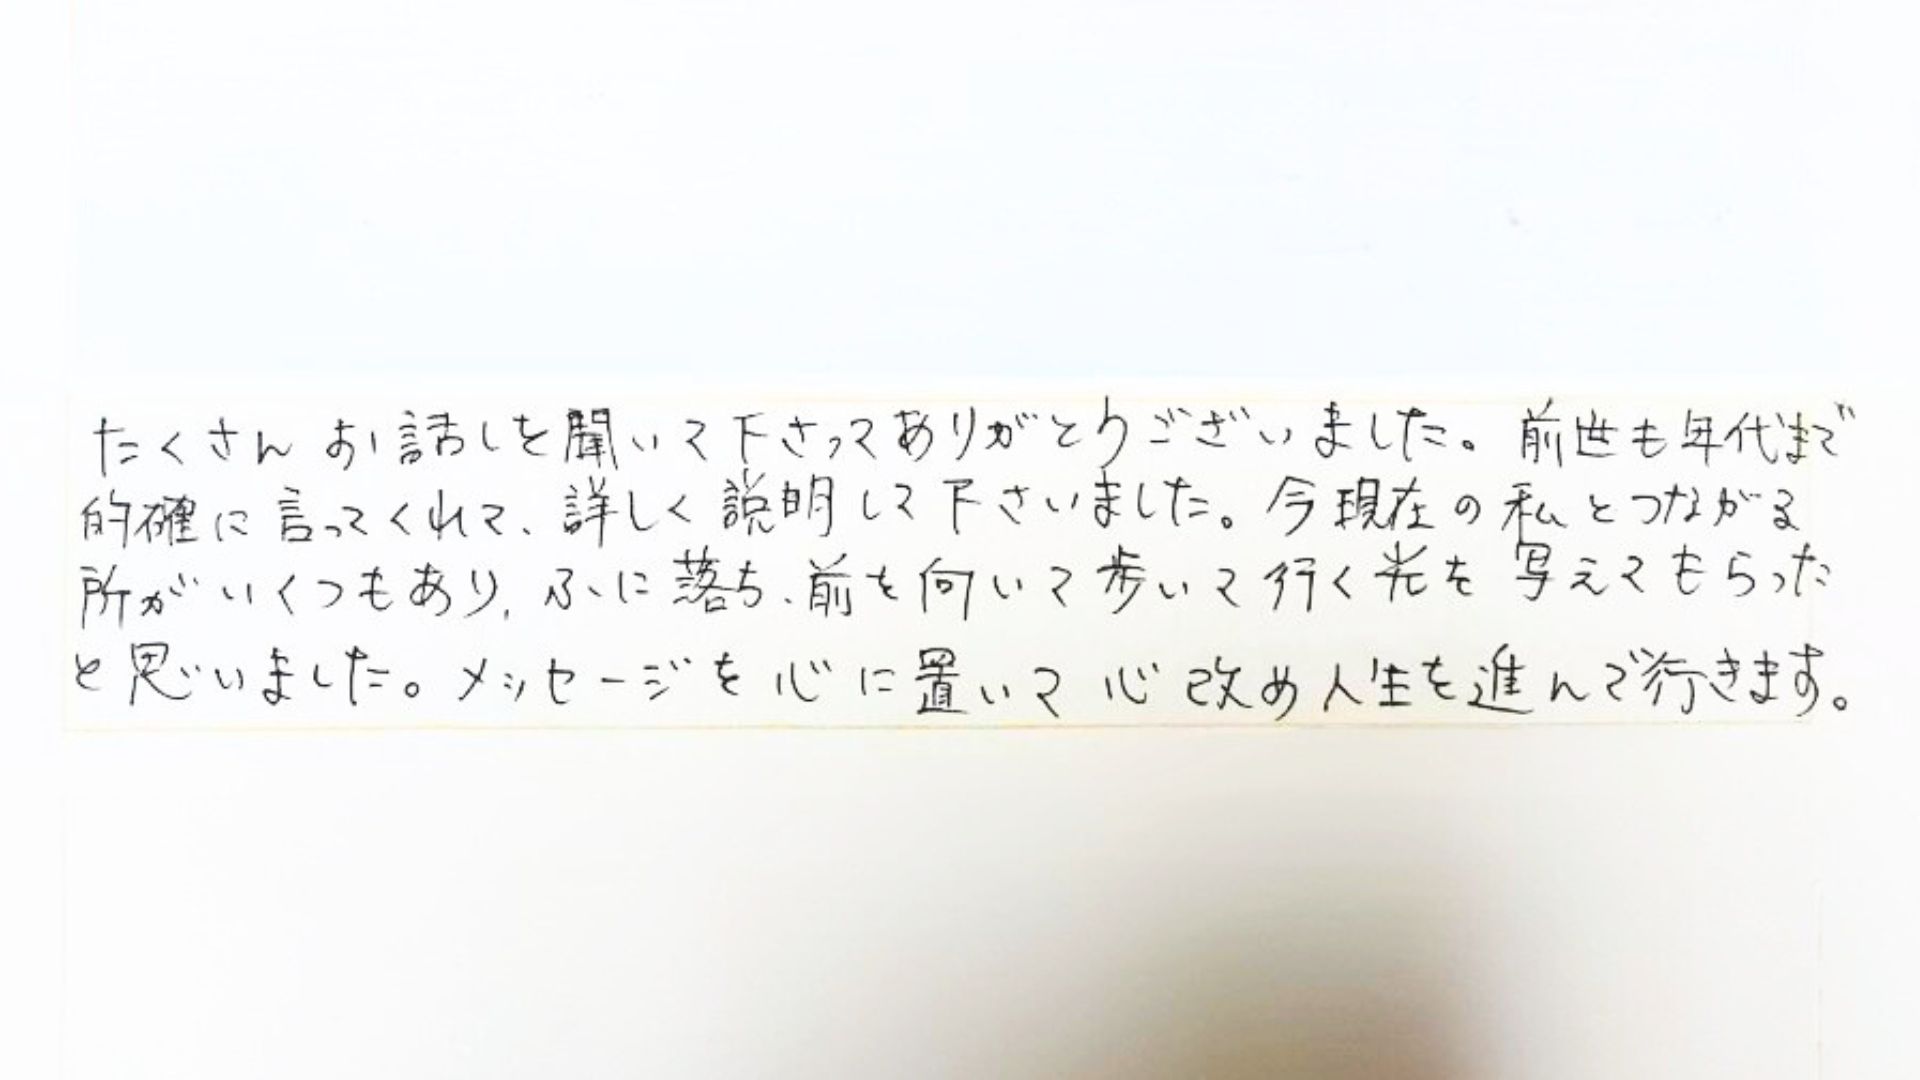 たくさん お話しを聞いて下さってありがとうございました。前世も年代まで
的確に言ってくれて、詳しく説明して下さいました。今現在の私とつながる
所がいくつもあり、ふに落ち、前を向いて歩いて行く光を写えてもらった
と思いました。メッセージを心に置いて心改め人生を進んで行きます。